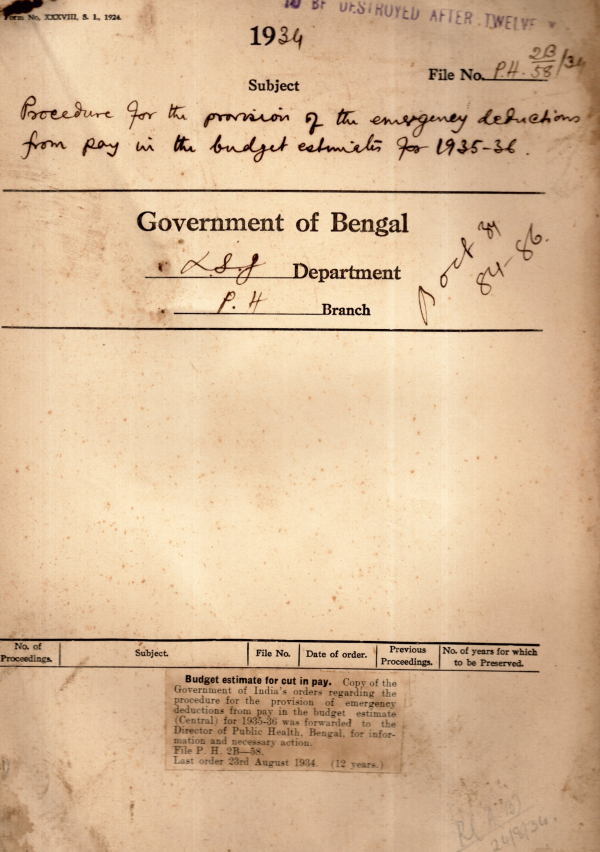 Form No. XXXVIII, S. I., 1924.
TO BE DESTROYED AFTER TWELVE
1934
File No. P.H. 2B/58/34
Subject
Procedure for the provision of the emergency deductions
from pay in the budget estimates for 1935-36.
Government of Bengal
L.S.G Department
P. H Branch
Oct 34
84-86.
No. of Proceedings. Subject. File No. Date of order. Previous Proceedings. No. of years for which to be Preserved.
Budget estimate for cut in pay. Copy of the
Government of India's orders regarding the
procedure for the provision of emergency
deductions from pay in the budget estimate
(Central) for 1935-36 was forwarded to the
Director of Public Health, Bengal, for infor-
mation and necessary action.
File P. H. 2B—58.
Last order 23rd August 1934. (12 years.)